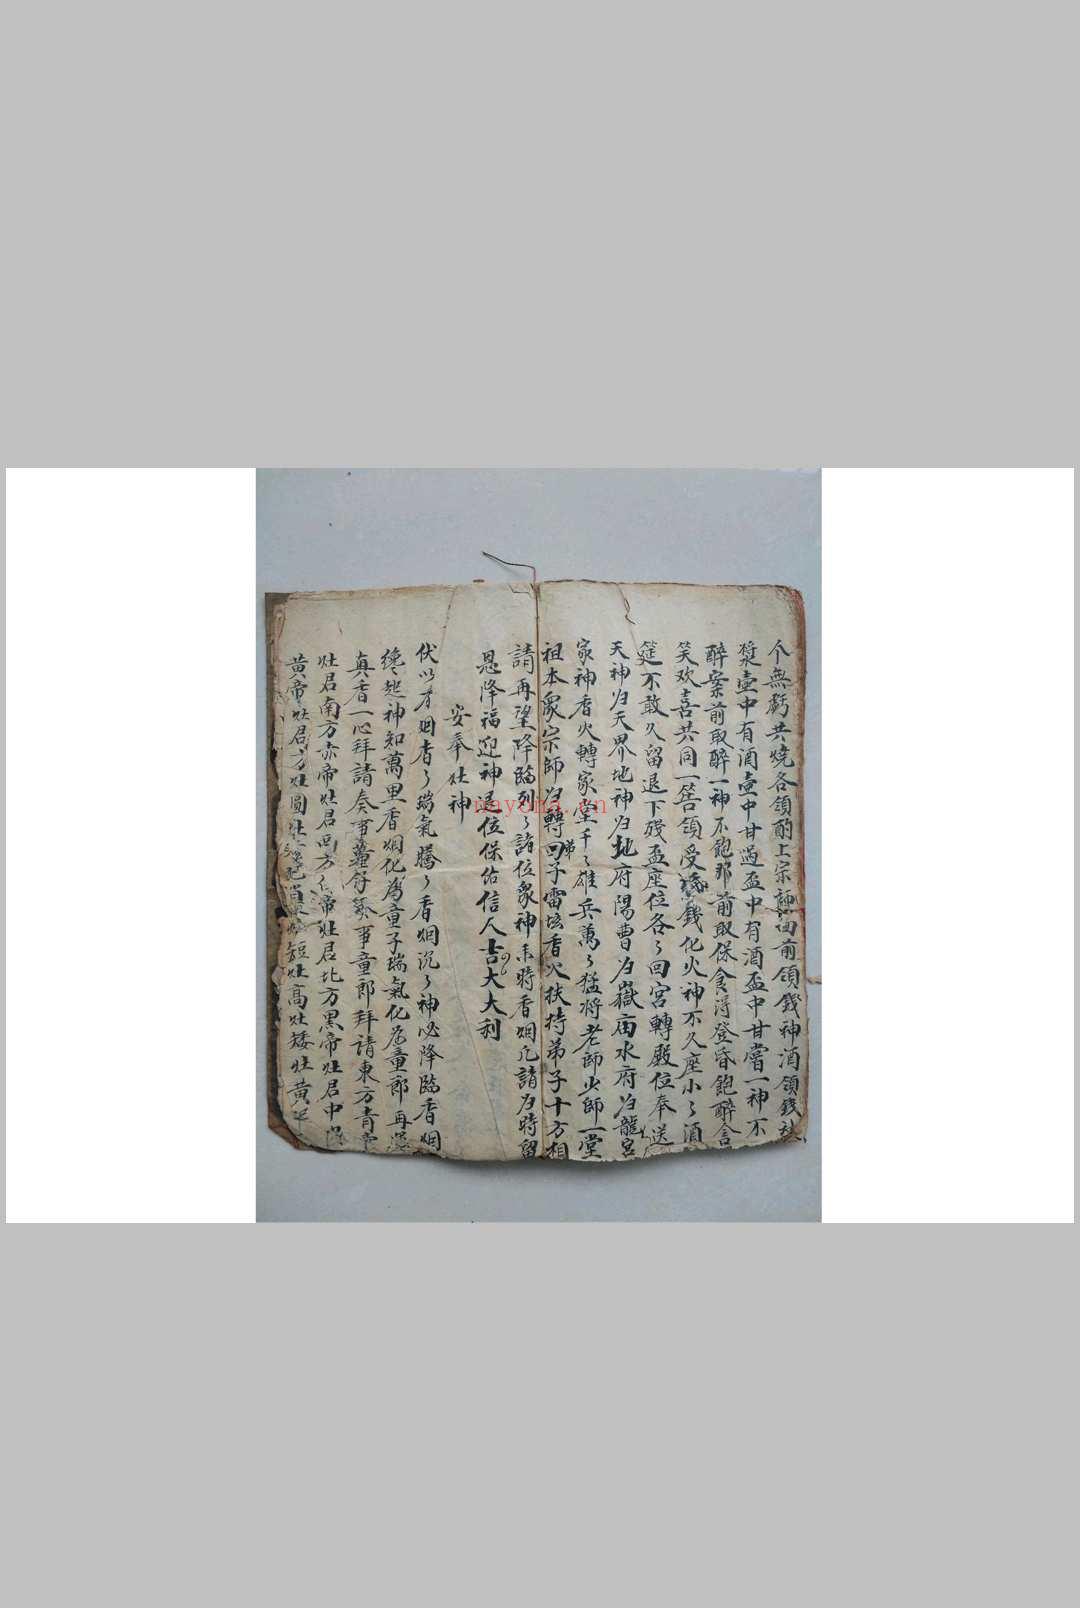 个無虧共燒各領酌上宗師面前領錢神酒領錢
漿壺中有酒壺中甘過盃中有酒盃中甘嘗一神不
醉案前取醉一神不飽那前取保食淂登昏飽醉言
笑欢喜共同一答領受錢化火神不久座小〻酒
筵不敢久留退下殘盃座位各〻回宮轉殿位奉送
天神归天界地神归地府陽曹归嶽庙水府归龍宮
家神香火轉家堂千〻雄兵萬〻猛将老師少師一堂
祖本眾宗師归轉回弟子雷坛香火扶持弟子十方相
請再望降臨列〻諸位眾神来時香烟凡請归時留
恩降福迎神退位保佑信人吉大大利
安奉灶神
伏以才烟香〻瑞氣騰〻香烟沉〻神必降臨香烟
纔起神知萬里香烟化為童子瑞氣化為童郎再
真香一心拜請奏事童子奏事童郎拜請東方青帝
灶君南方赤帝灶君西方帝灶君北方黑帝灶君中
黄帝灶君方灶圓灶短灶高灶矮灶黄
nayona.cn